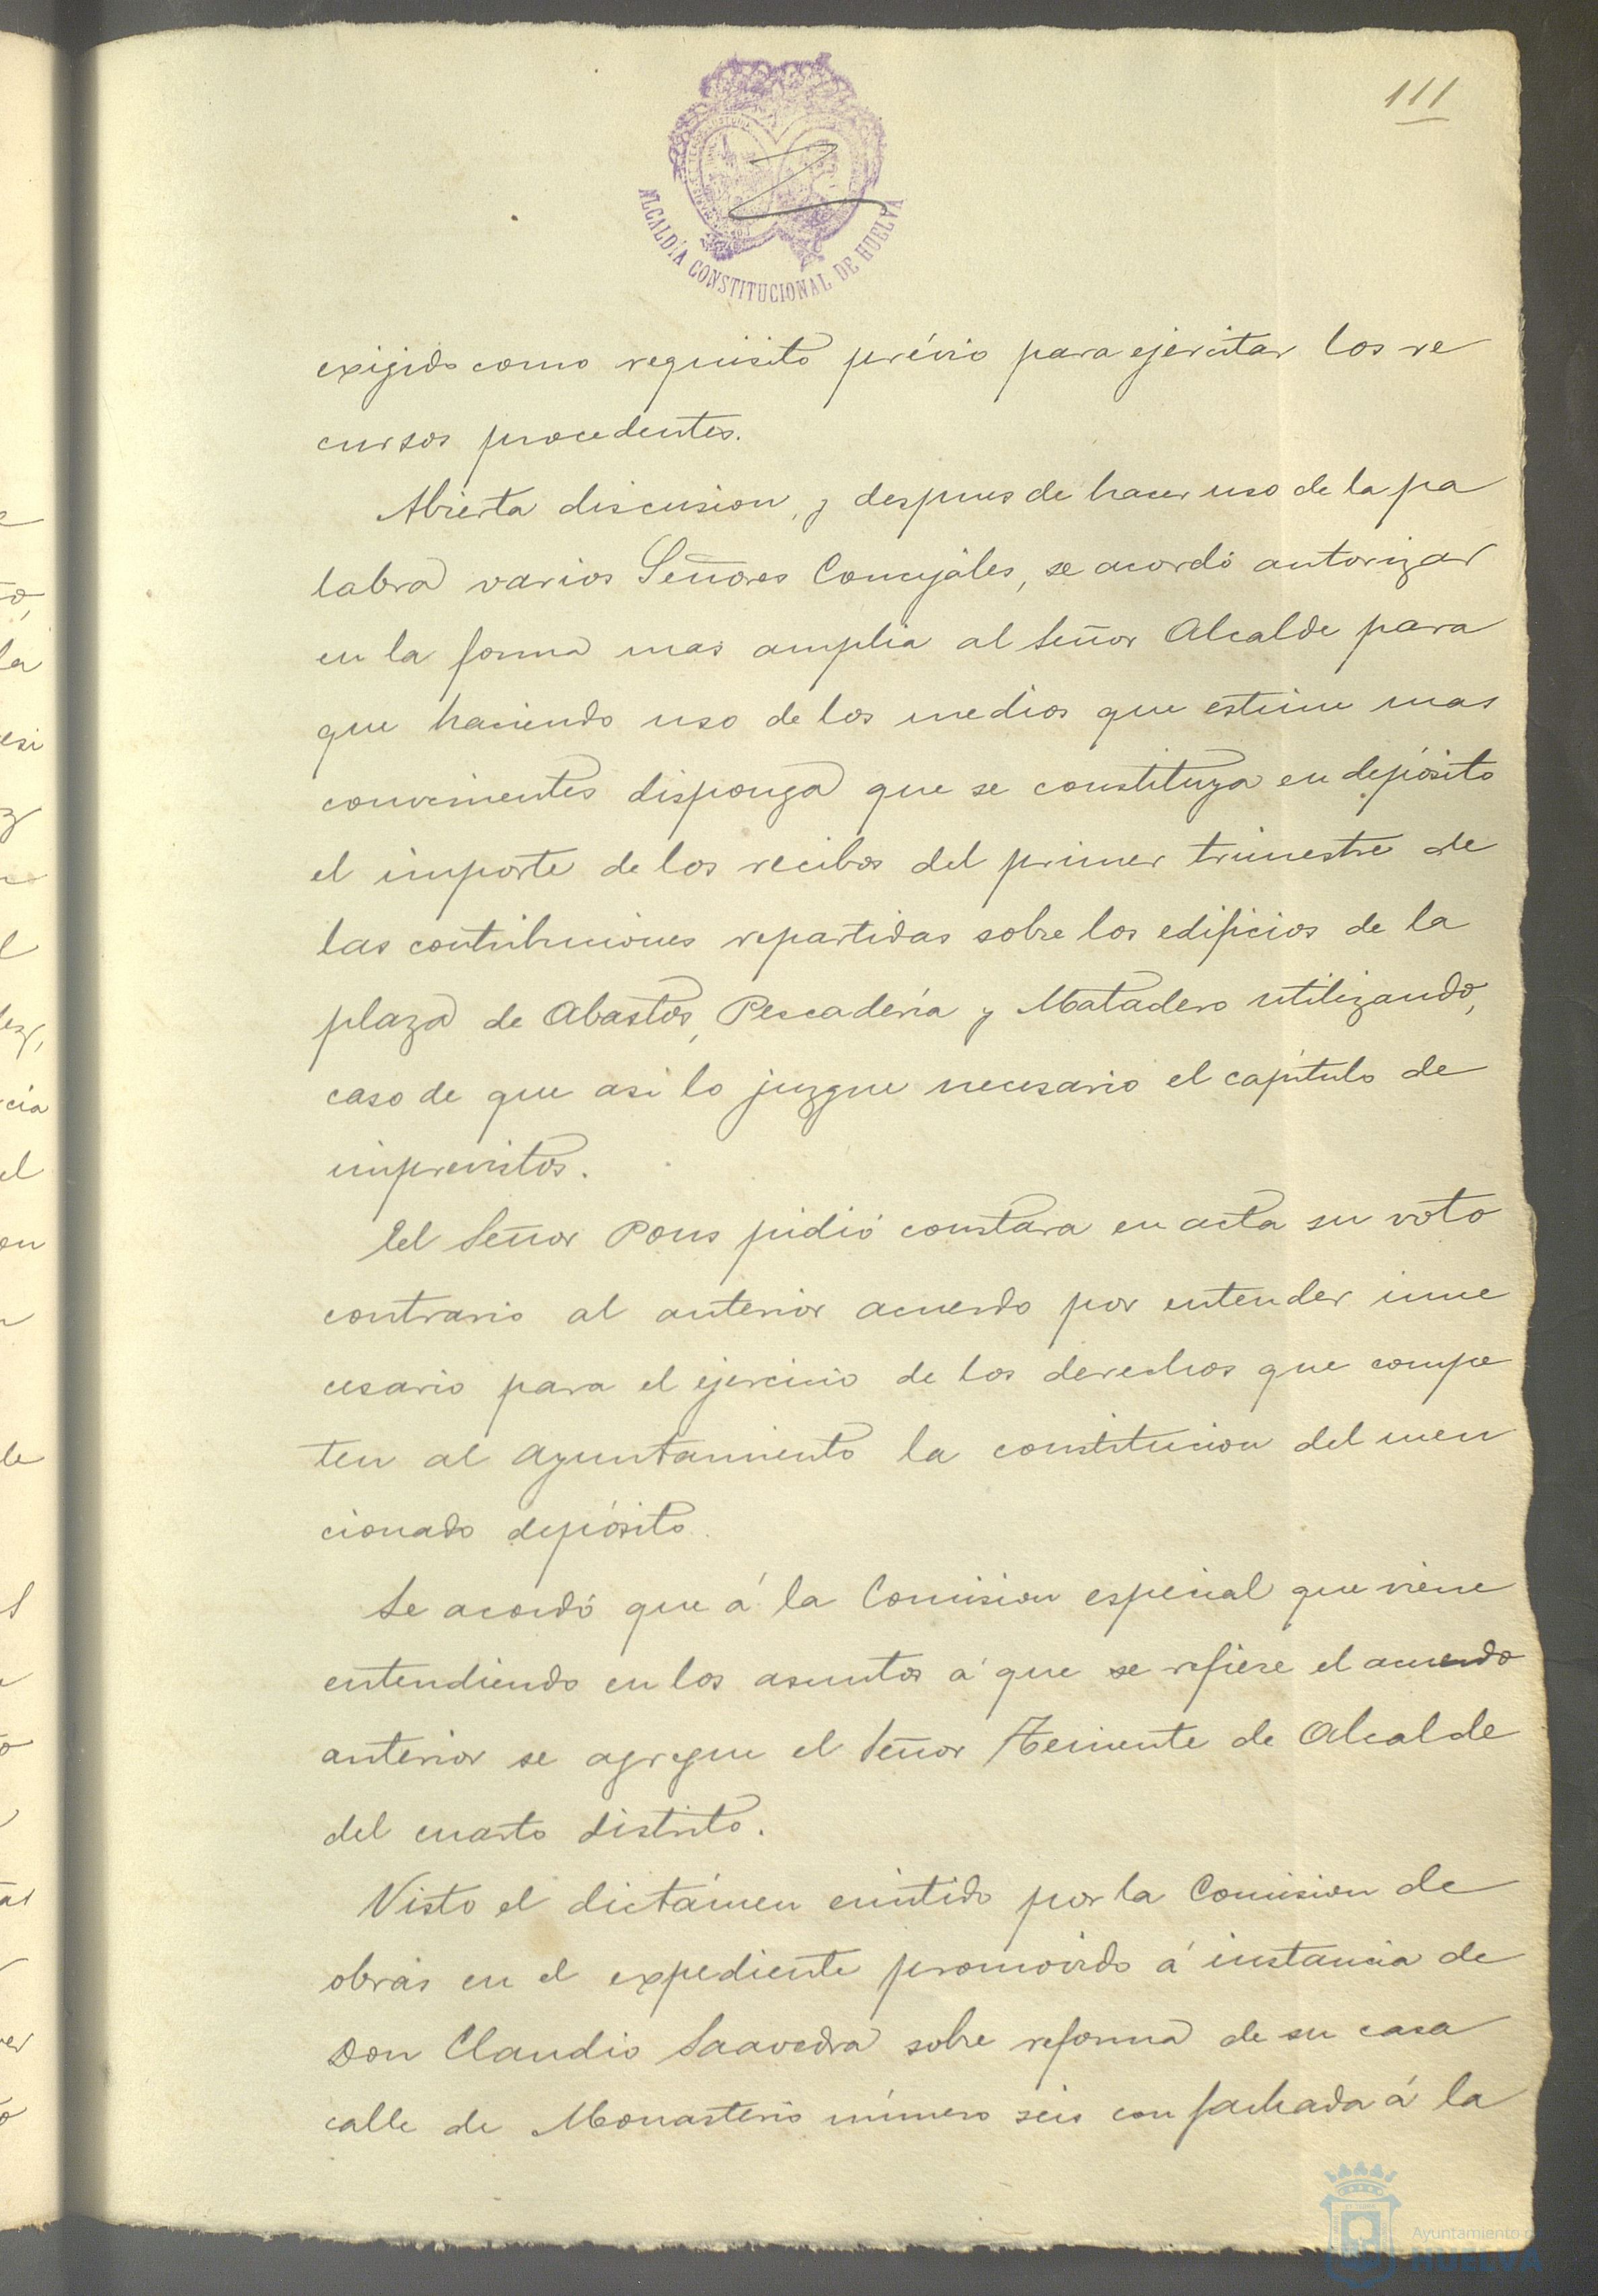 111
ALCALDÍA CONSTITUCIONAL DE HUELVA
exijido como requisito prévio para ejercitar los re
cursos procedentes.
Abierta discusion, y despues de hacer uso de la pa
labra varios Señores Concejáles, se acordó autorizar
en la forma mas amplia al Señor Alcalde para
que haciendo uso de los medios que estime mas
convenientes disponga que se constituya en depósito
el importe de los recibos del primer trimestre de
las contribuciones repartidas sobre los edificios de la
plaza de Abastos, Pescadería y Matadero utilizando,
caso de que asi lo juzgue necesario el capítulo de
imprevistos.
El Señor Pons pidió constara en acta su voto
contrario al anterior acuerdo por entender inne
cesario para el ejercicio de los derechos que compe
ten al Ayuntamiento la constitucion del men
cionado depósito.
Se acordó que á la Comision especial que viene
entendiendo en los asuntos á que se refiere el acuerdo
anterior se agregue el Señor Teniente de Alcalde
del cuarto distrito.
Visto el dictámen emitido por la Comision de
obras en el expediente promovido á instancia de
Don Claudio Saavedra sobre reforma de su casa
calle de Monasterio número seis con fachada á la
Ayuntamiento de
HUELVA